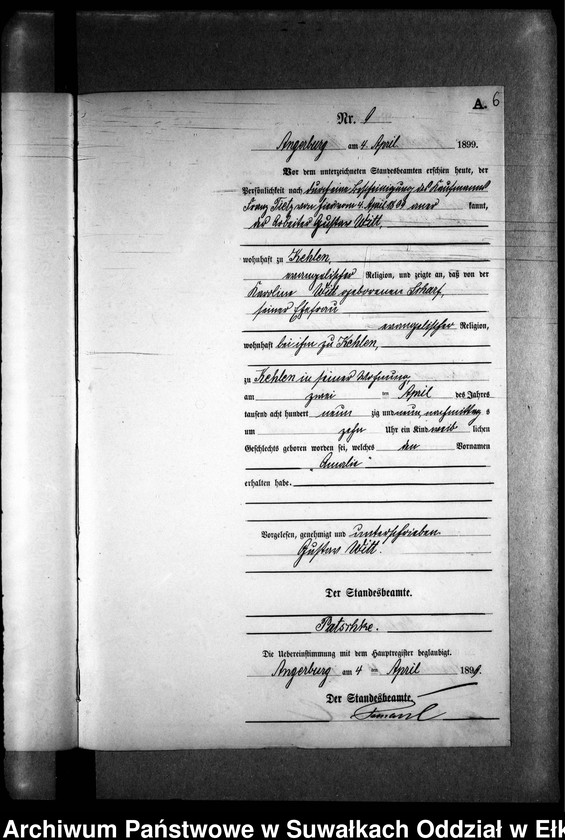 A. 6
Nr.
Angerburg am 4. April 1899.
Vor dem unterzeichneten Standesbeamten erschien heute, der
Persönlichkeit nach durch eine Bescheinigung des Kaufmanns
Franz Tietz von hier vom 4. April 1899 aner kannt,
der Arbeiter Gustav Witt,
wohnhaft zu Kehlen,
evangelischer Religion, und zeigte an, daß von der
Karoline Witt geborenen Scharf,
seiner Ehefrau
evangelischer Religion,
wohnhaft bei ihm zu Kehlen,
zu Kehlen in seiner Wohnung,
am zwei ten April des Jahres
tausend acht hundert neun zig und neun, nachmittag s
um zehn Uhr ein Kind weib lichen
Geschlechts geboren worden sei, welches den Vornamen
"Amalie"
erhalten habe.
Vorgelesen, genehmigt und unterschrieben
Gustav Witt.
Der Standesbeamte.
Patschke.
Die Uebereinstimmung mit dem Hauptregister beglaubigt.
Angerburg am 4 ten April 1899.
Der Standesbeamte.
Archiwum Państwowe w Suwałkach Oddział w Ełk